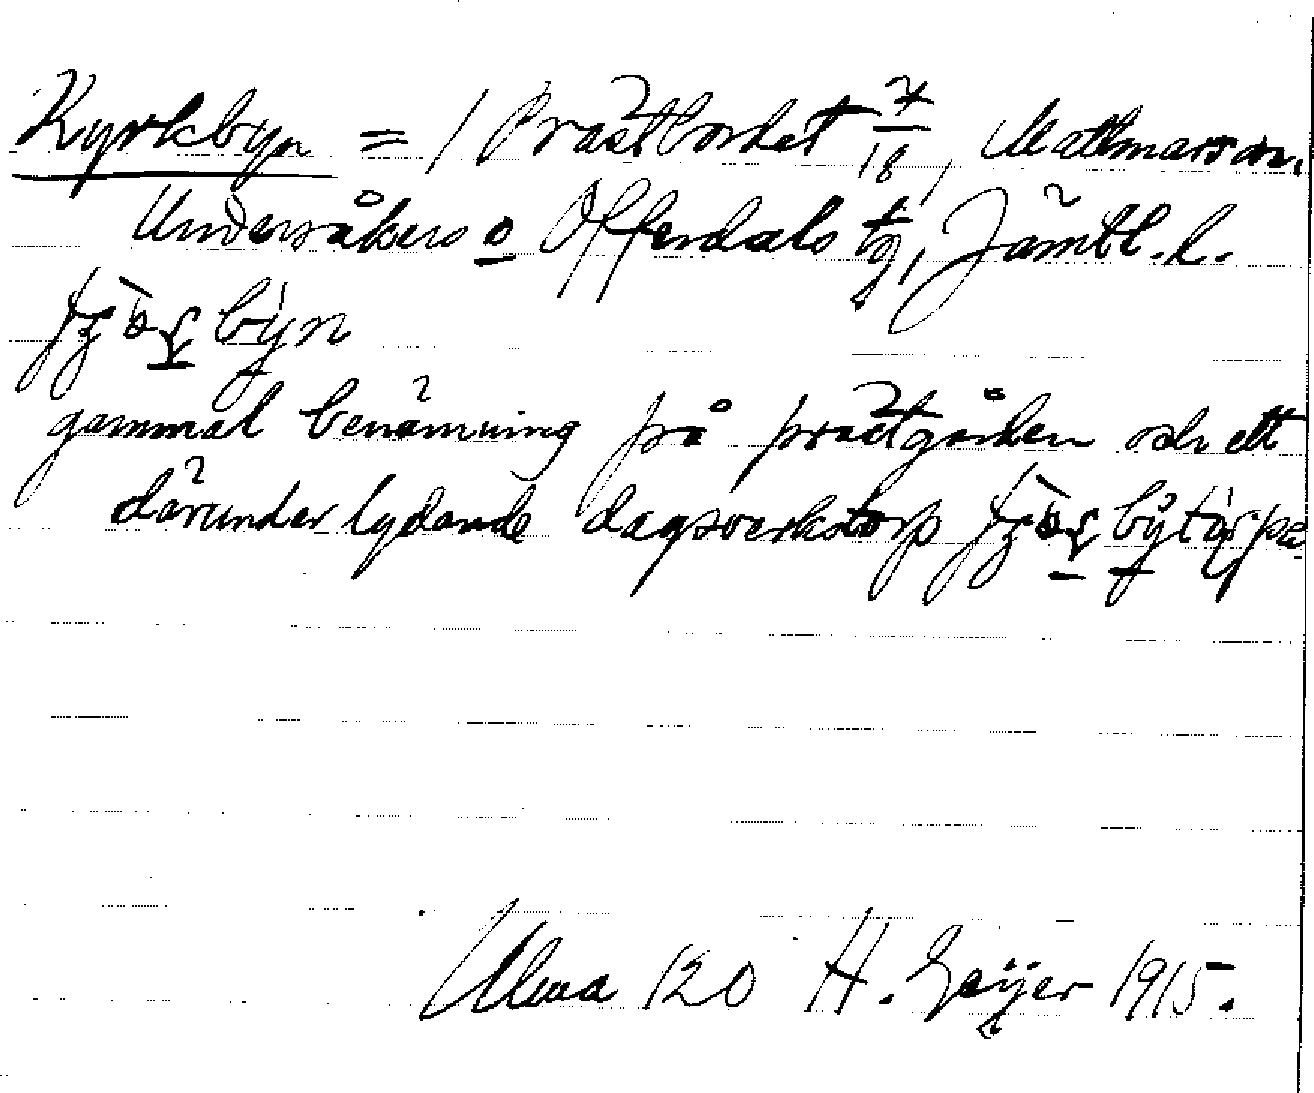 Kyrkbyn = / Prästbordet 7/18, Mattmars sn.
Undersåkers o Offerdals tg, Jämtl. l.
byn
gammal benämning på prästgården och ett
därunder lydande dagsverkstorp
Ulma 120 H. Geijer 1915.